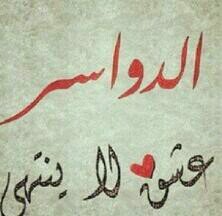 الدواسر
عشق لا ينتهي